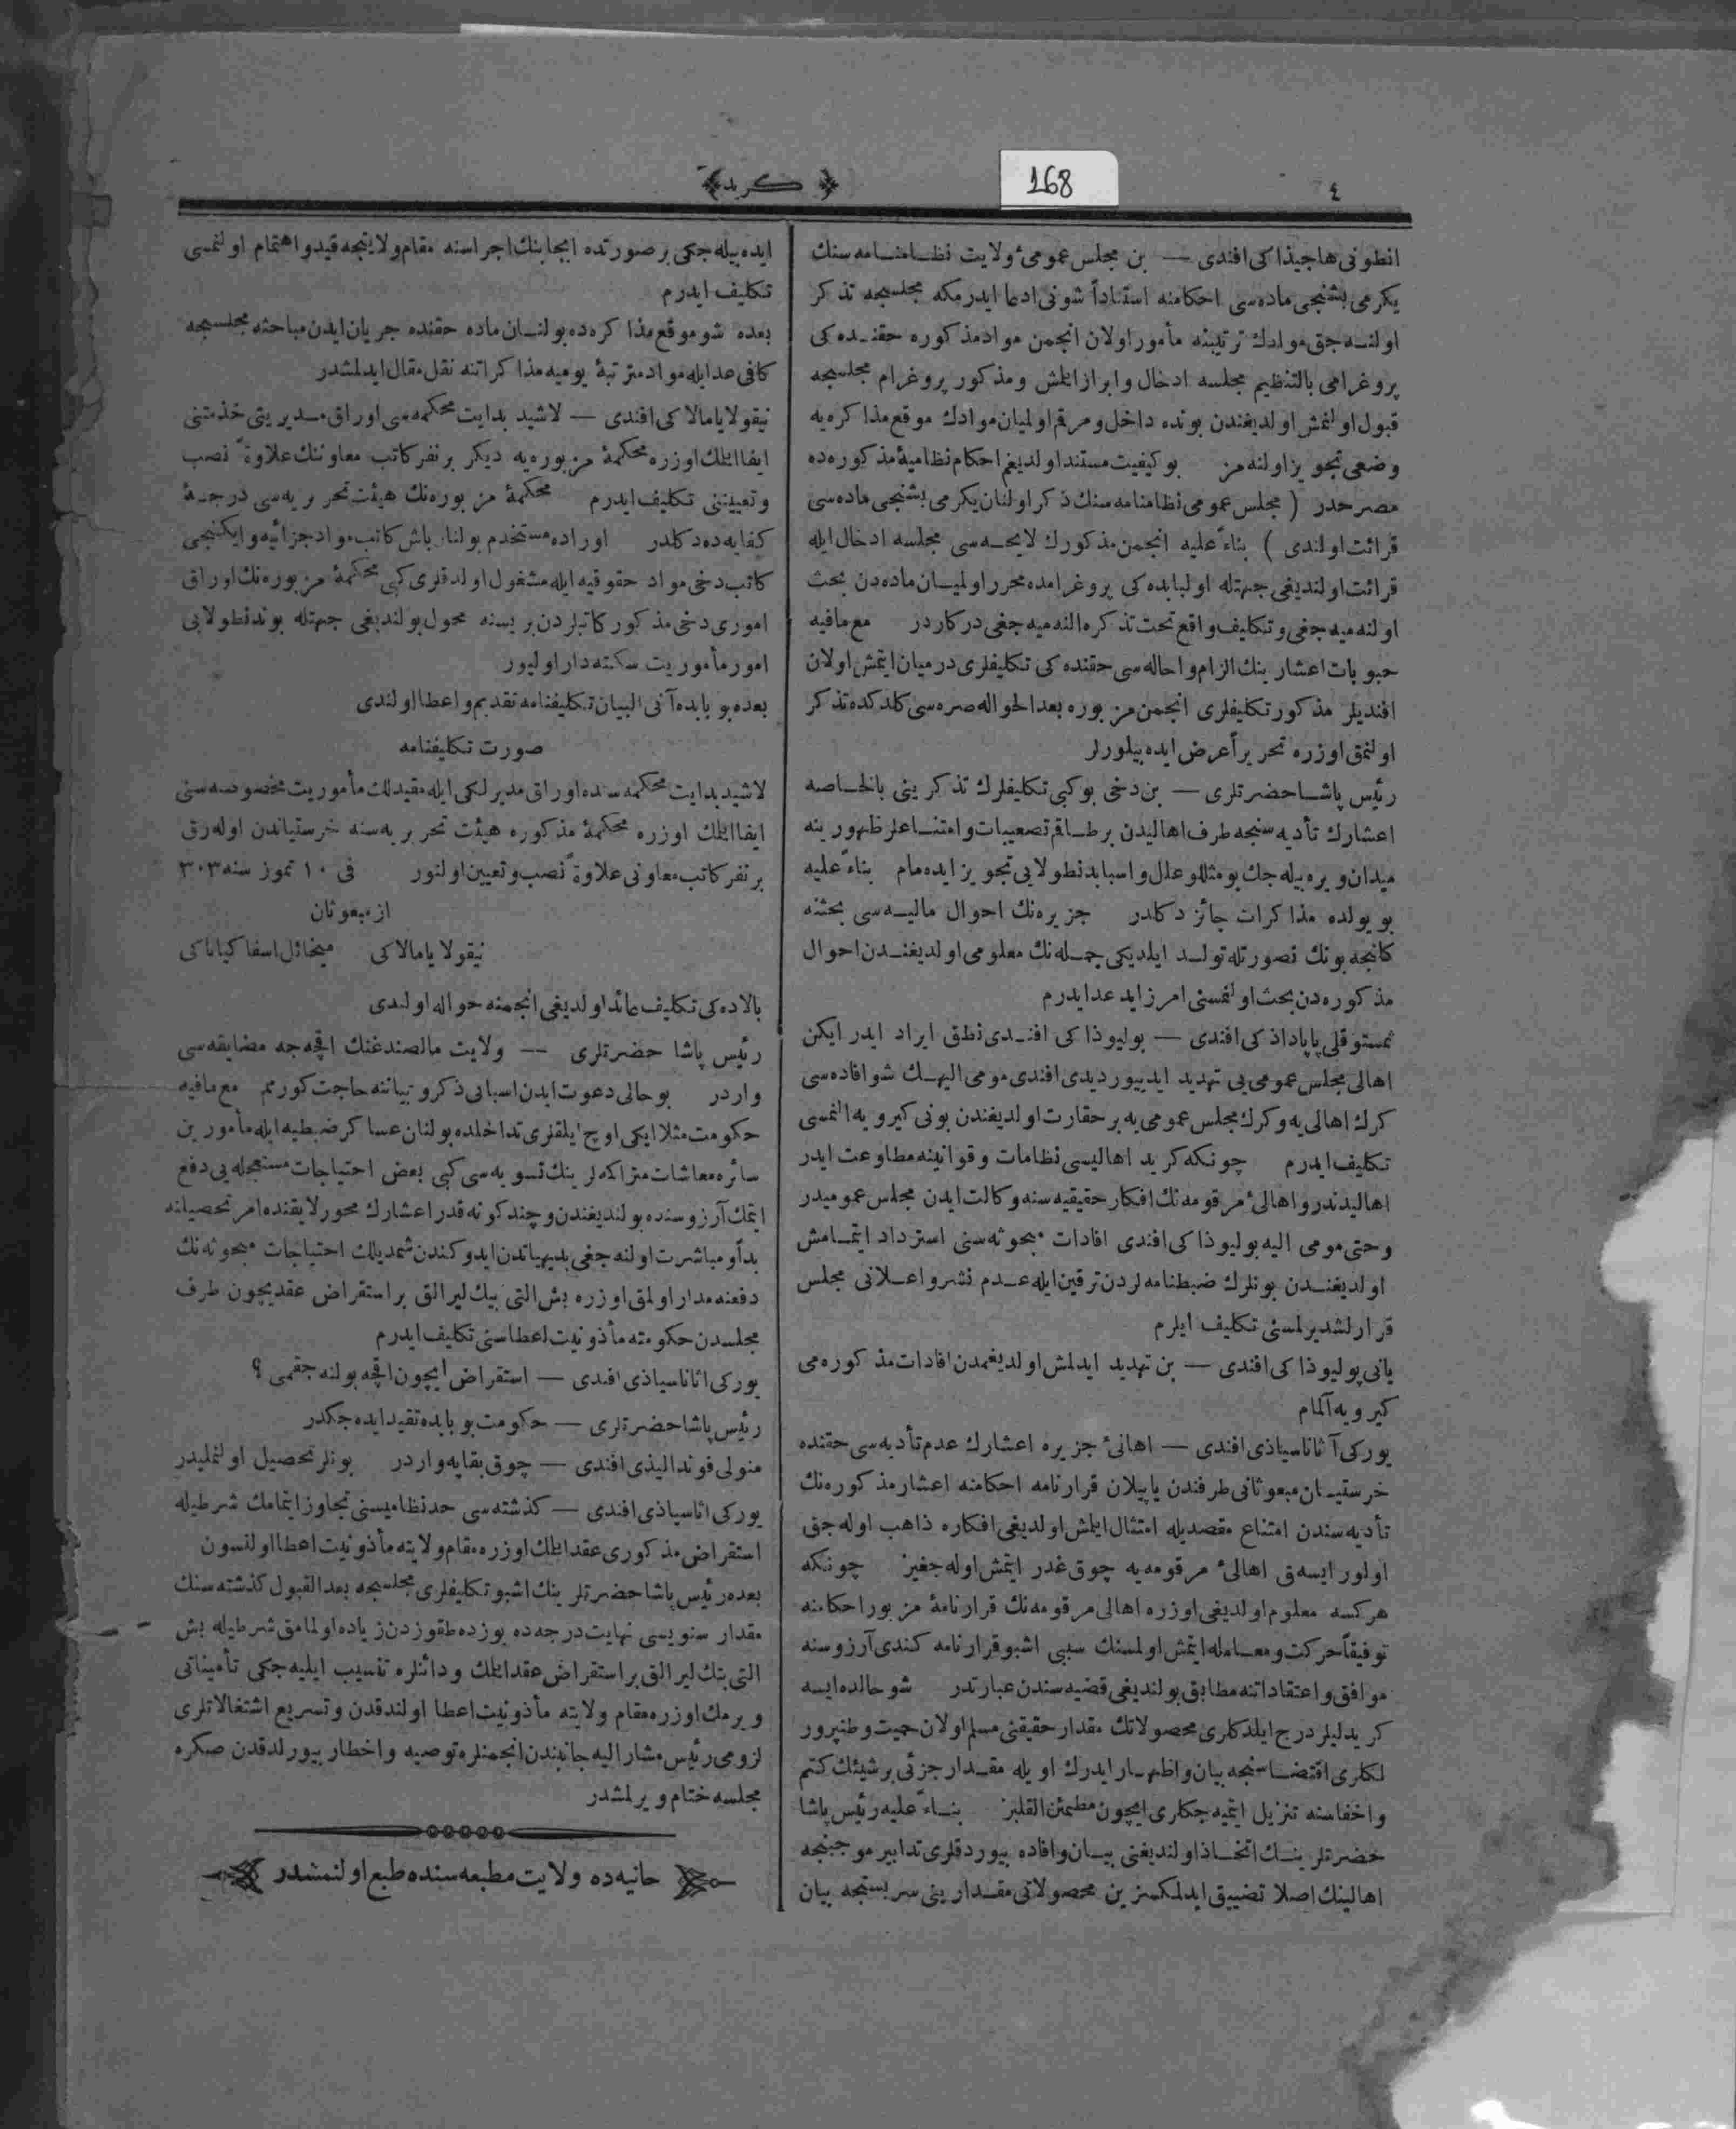 ٤
168
﴿ كريد ﴾
انطونی هاجیذاکی افندی — بن مجلس عمومیٔ ولایت نظامنامه سنك
یکرمی بشنجی ماده سی احکامنه استناداً شونی ادعا ایدرمکه مجلسجه تذکر
اولنه جق موادك ترتیبنه مأمور اولان انجمن مواد مذکوره حقنده کی
پروغرامی بالتنظیم مجلسه ادخال و ابراز ایلمش و مذکور پروغرام مجلسجه
قبول اولنمش اولدیغندن بونده داخل و مرقم اولمیان موادك موقع مذاکره یه
وضعی تجویز اولنه مز بو کیفیت مستند اولدیغم احکام نظامیهٔ مذکوره ده
مصرحدر ( مجلس عمومی نظامنامه سنك ذکر اولنان یکرمی بشنجی ماده سی
قرائت اولندی ) بناءً علیه انجمن مذکورك لایحه سی مجلسه ادخال ایله
قرائت اولندیغی جهتله اولبابده کی پروغرامده محرر اولمیان ماده دن بحث
اولنه میه جغی و تکلیف واقع تحت تذکره النه میه جغی درکاردر مع مافیه
حبوبات اعشارینك الزام و احاله سی حقنده کی تکلیفلری درمیان ایتمش اولان
افندیلر مذکور تکلیفلری انجمن مزبوره بعد الحواله صره سی کلدکده تذکر
اولنمق اوزره تحریراً عرض ایده بیلورلر
رئیس پاشا حضرتلری — بن دخی بو کبی تکلیفلرك تذکرینی بالخاصه
اعشارك تأدیه سنجه طرف اهالیدن برطاقم تصعیبات و امتناعلر ظهورینه
میدان ویره بیله جك بو مثللو علل و اسبابدنطولایی تجویز ایده مام بناءً علیه
بو یولده مذاکرات جائز دکلدر جزیره نك احوال مالیه سی بحثنه
کلنجه بونك نصورتله تولد ایلدیکی جمله نك معلومی اولدیغندن احوال
مذکوره دن بحث اولنمسنی امر زاید عد ایدرم
ثمستوقلی پاپاداذکی افندی — بولیوذاکی افندی نطق ایراد ایدر ایکن
اهالی مجلس عمومی یی تهدید ایدییور دیدی افندی مومی الیهك شو افاده سی
کرك اهالی یه و کرك مجلس عمومی یه بر حقارت اولدیغندن بونی کیرویه النمسنی
تکلیف ایدرم چونکه کرید اهالیسی نظامات و قوانینه مطاوعت ایدر
اهالیدندر و اهالیٔ مرقومه نك افکار حقیقیه سنه وکالت ایدن مجلس عمومیدر
وحتی مومی الیه بولیوذاکی افندی افادات مبحوثه سنی استرداد ایتمامش
اولدیغندن بونلرك ضبطنامه لردن ترقین ایله عدم نشر و اعلانی مجلس
قرارلشدیرلمسنی تکلیف ایلرم
یانی پولیوذاکی افندی — بن تهدید ایدلمش اولدیغمدن افادات مذکوره می
کیرویه آلمام
یورکی آثاناسیاذی افندی — اهالیٔ جزیره اعشارك عدم تأدیه سی حقنده
خرستیان مبعوثانی طرفندن یاپیلان قرارنامه احکامنه اعشار مذکوره نك
تأدیه سندن امتناع مقصدیله امتثال ایلمش اولدیغی افکاره ذاهب اوله جق
اولور ایسه ق اهالیٔ مرقومه یه چوق غدر ایتمش اوله جغز چونکه
هرکسه معلوم اولدیغی اوزره اهالی مرقومه نك قرارنامهٔ مزبور احکامنه
توفیقاً حرکت و معامله ایتمش اولمسنك سببی اشبو قرارنامه کندی آرزوسنه
موافق و اعتقاداتنه مطابق بولندیغی قضیه سندن عبارتدر شو حالده ایسه
کریدلیلر درج ایلدکلری محصولاتك مقدار حقیقیسنی مسلم اولان حمیت و طنپرور
لکلری اقتضاسنجه بیان و اظهار ایدرك اویله مقدار جزئی برشیئك کتم
و اخفاسنه تنزیل ایتمیه جکلری ایچون مطمئن القلبز بناءً علیه رئیس پاشا
حضرتلرینك اتخاذ اولندیغنی بیان و افاده بیوردقلری تدابیر موجبنجه
اهالینك اصلا تضییق ایدلمکسزین محصولاتی مقدارینی سربستجه بیان
ایده بیله جکی بر صورتده ایجابنك اجراسنه مقام ولایتجه قید و اهتمام اولنمسنی
تکلیف ایدرم
بعده شو موقع مذاکره ده بولنان ماده حقنده جریان ایدن مباحثه مجلسجه
کافی عد ایله مواد مترتبهٔ یومیه مذاکراتنه نقل مقال ایدلمشدر
نیقولا یامالاکی افندی — لاشید بدایت محکمه سی اوراق مدیریتی خدمتنی
ایفا ایلمك اوزره محکمهٔ مزبوره یه دیکر بر نفر کاتب معاوننك علاوةً نصب
و تعییننی تکلیف ایدرم محکمهٔ مزبوره نك هیئت تحریریه سی درجهٔ
کفایه ده دکلدر اوراده مستخدم بولنان باش کاتب مواد جزائیه و ایکنجی
کاتب دخی مواد حقوقیه ایله مشغول اولدقلری کبی محکمهٔ مزبوره نك اوراق
اموری دخی مذکور کاتبلردن بریسنه محول بولندیغی جهتله بوندنطولایی
امور مأموریت سکته دار اولیور
بعده بو بابده آتی البیان تکلیفنامه تقدیم و اعطا اولندی
صورت تکلیفنامه
لاشید بدایت محکمه سنده اوراق مدیرلکی ایله مقیدلك مأموریت مخصوصه سنی
ایفا ایلمك اوزره محکمهٔ مذکوره هیئت تحریریه سنه خرستیاندن اوله رق
بر نفر کاتب معاونی علاوةً نصب و تعیین اولنور فی ١٠ تموز سنه ٣٠٣
از مبعوثان
نیقولا یامالاکی میخائل اسفاکیاناکی
بالاده کی تکلیف عائد اولدیغی انجمنه حواله اولندی
رئیس پاشا حضرتلری — ولایت مال صندغنك اقچه جه مضایقه سی
واردر بو حالی دعوت ایدن اسبابی ذکر و بیاننه حاجت کورمم مع مافیه
حکومت مثلا ایکی اوچ ایلقلری تداخلده بولنان عساکر ضبطیه ایله مأمورین
سائره معاشات متراکمه لرینك تسویه سی کبی بعض احتیاجات مستعجله یی دفع
ایتمك آرزوسنده بولندیغندن و چند کونه قدر اعشارك محور لایقنده امر تحصیلنه
بدأ و مباشرت اولنه جغی بدیهیاتدن ایدوکندن شمدیلك احتیاجات مبحوثه نك
دفعنه مدار اولمق اوزره بش التی بیك لیرالق بر استقراض عقدیچون طرف
مجلسدن حکومته مأذونیت اعطاسنی تکلیف ایدرم
یورکی اثاناسیاذی افندی — استقراض ایچون اقچه بولنه جقمی ؟
رئیس پاشا حضرتلری — حکومت بو بابده تقید ایده جکدر
منولی فوندالیذی افندی — چوق بقایه واردر بونلر تحصیل اولنملیدر
یورکی اثاسیاذی افندی — کذشته سی حد نظامیسنی تجاوز ایتمامك شرطیله
استقراض مذکوری عقد ایلمك اوزره مقام ولایته مأذونیت اعطا اولنسون
بعده رئیس پاشا حضرتلرینك اشبو تکلیفلری مجلسجه بعد القبول کذشته سنك
مقدار سنویسی نهایت درجه ده یوزده طقوزدن زیاده اولمامق شرطیله بش
التی بیك لیرالق بر استقراض عقد ایلمك و داینلره تنسیب ایلیه جکی تأمیناتی
ویرمك اوزره مقام ولایته مأذونیت اعطا اولندقدن و تسریع اشتغالاتلری
لزومی رئیس مشار الیه جانبندن انجمنلره توصیه و اخطار بیورلدقدن صکره
مجلسه ختام ویرلمشدر
حانیه ده ولایت مطبعه سنده طبع اولنمشدر